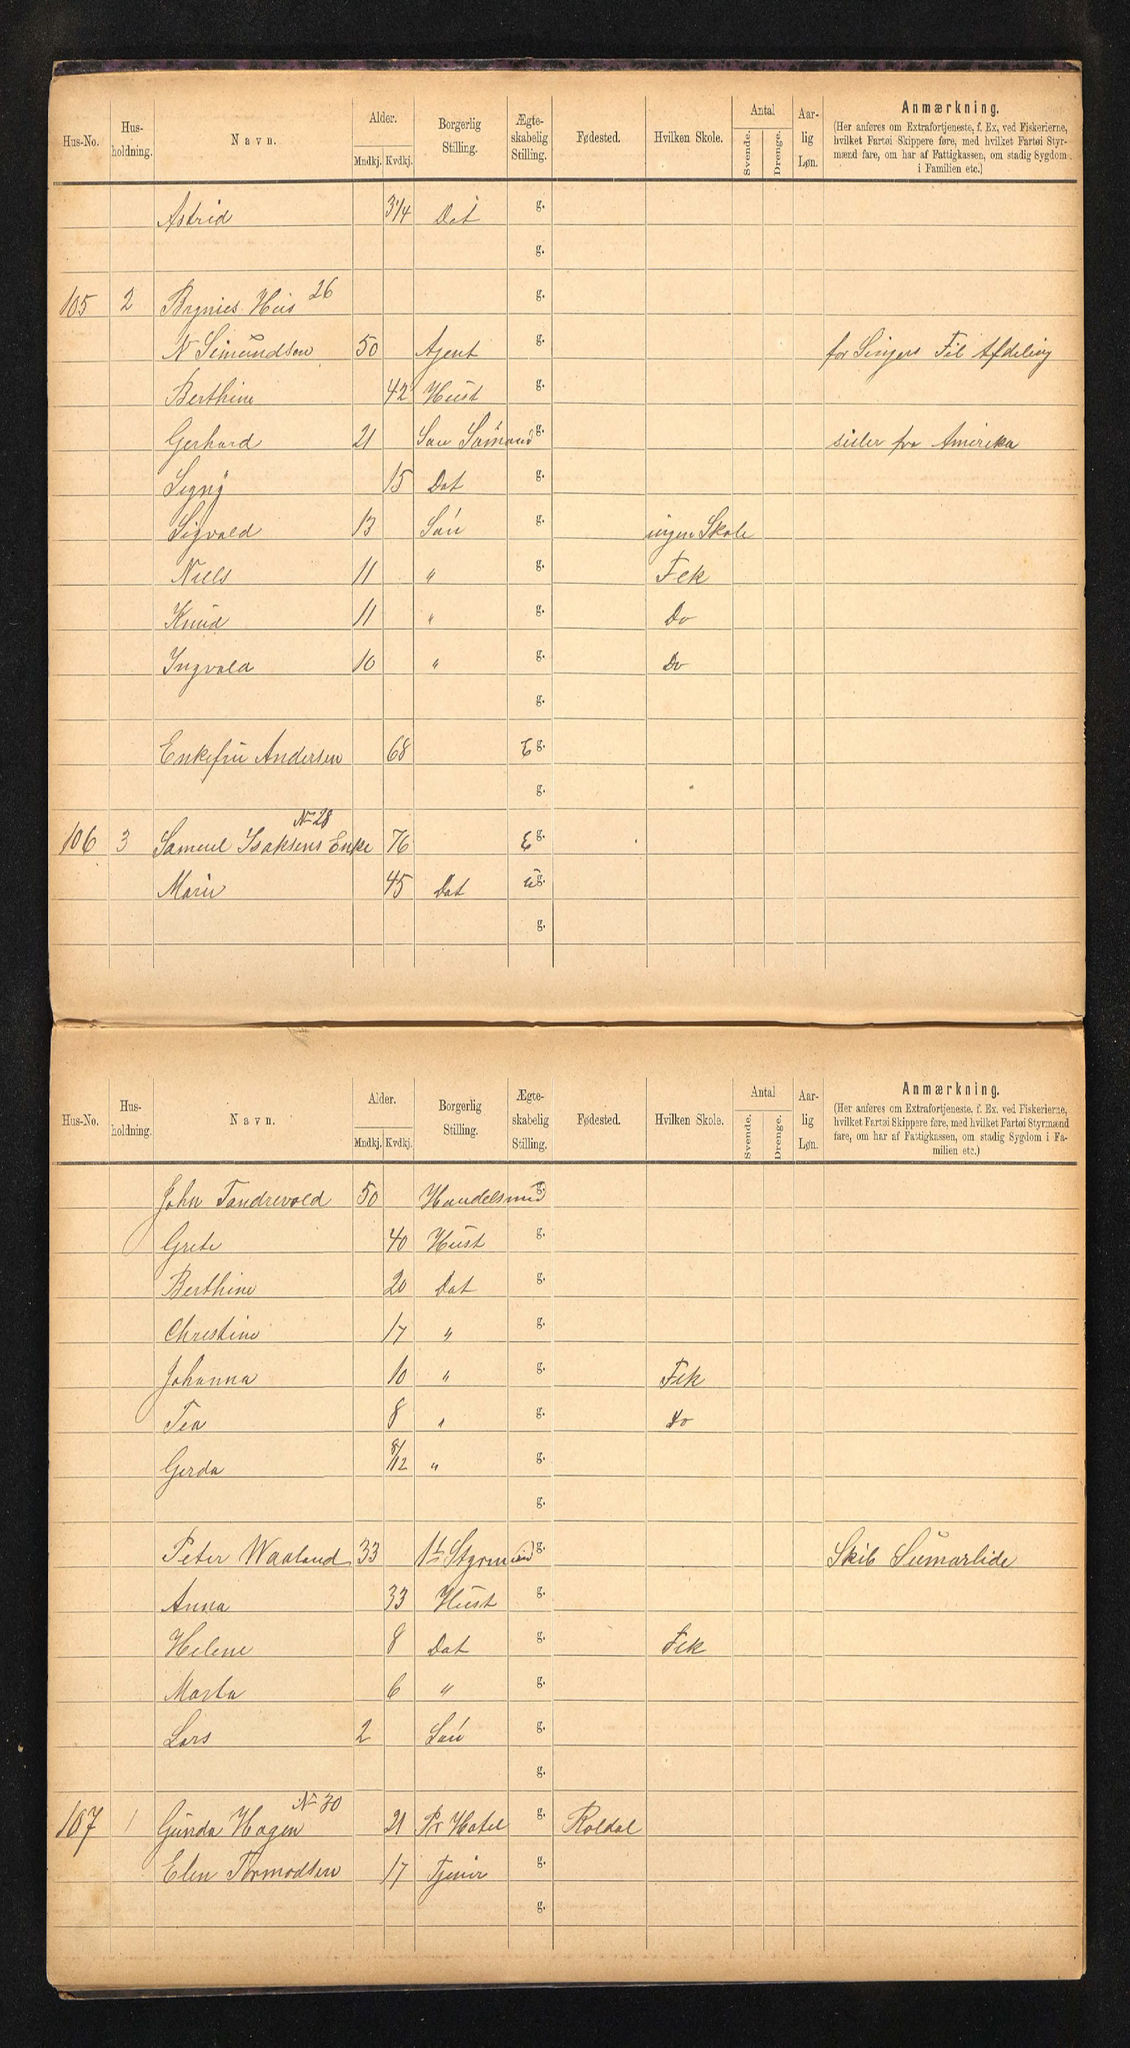 Hus-No. Hus-holdning. Navn. Alder. Mndkj. Kvdkj. Borgerlig Stilling. Ægte-skabelig Stilling. Fødested. Hvilken Skole. Antal Svende. Drenge. Aar-lig Løn. Anmærkning.
(Her anføres om Extrafortjeneste, f. Ex. ved Fiskerierne,
hvilket Fartøi Skippere føre, med hvilket Fartøi Styr-
mænd fare, om har af Fattigkassen, om stadig Sygdom
i Familien etc.)
Astrid 3/4 Dat g.
g.
105 2 Brynies Hus 26 g.
N Simundsen 50 Agent g. for Singers Fil Afdeling
Berthine 42 Hust g.
Gerhard 21 Søn Sømand g. seiler fra Amerika
Signy 15 Dat g.
Sigvald 13 Søn g. ingen Skole
Niels 11 " g. Fck
Knud 11 " g. Do
Ingvald 10 " g. Do
g.
Enkefru Andersen 68 E g.
g.
No 28
106 3 Samuel Isaksens Enke 76 E g.
Marie 45 Dat u g.
g.
Hus-No. Hus-holdning. Navn. Alder. Mndkj. Kvdkj. Borgerlig Stilling. Ægte-skabelig Stilling. Fødested. Hvilken Skole. Antal Svende. Drenge. Aar-lig Løn. Anmærkning.
(Her anføres om Extrafortjeneste, f. Ex. ved Fiskerierne,
hvilket Fartøi Skippere føre, med hvilket Fartøi Styrmænd
fare, om har af Fattigkassen, om stadig Sygdom i Fa-
milien etc.)
John Tandrevold 50 Handelsmd g.
Grete 40 Hust g.
Berthine 20 Dat g.
Christine 17 " g.
Johanna 10 " g. Fck
Tea 8 " g. Do
Gerda 8/12 " g.
g.
Peter Waaland 33 1st Styrmand g. Skib Sumarlide
Anna 33 Hust g.
Helene 8 Dat g. Fck
Marta 6 " g.
Lars 2 Søn g.
g.
No 30
107 1 Gunda Hagen 21 Pr Hotel g. Roldal
Elen Tormodsen 17 Tjener g.
g.